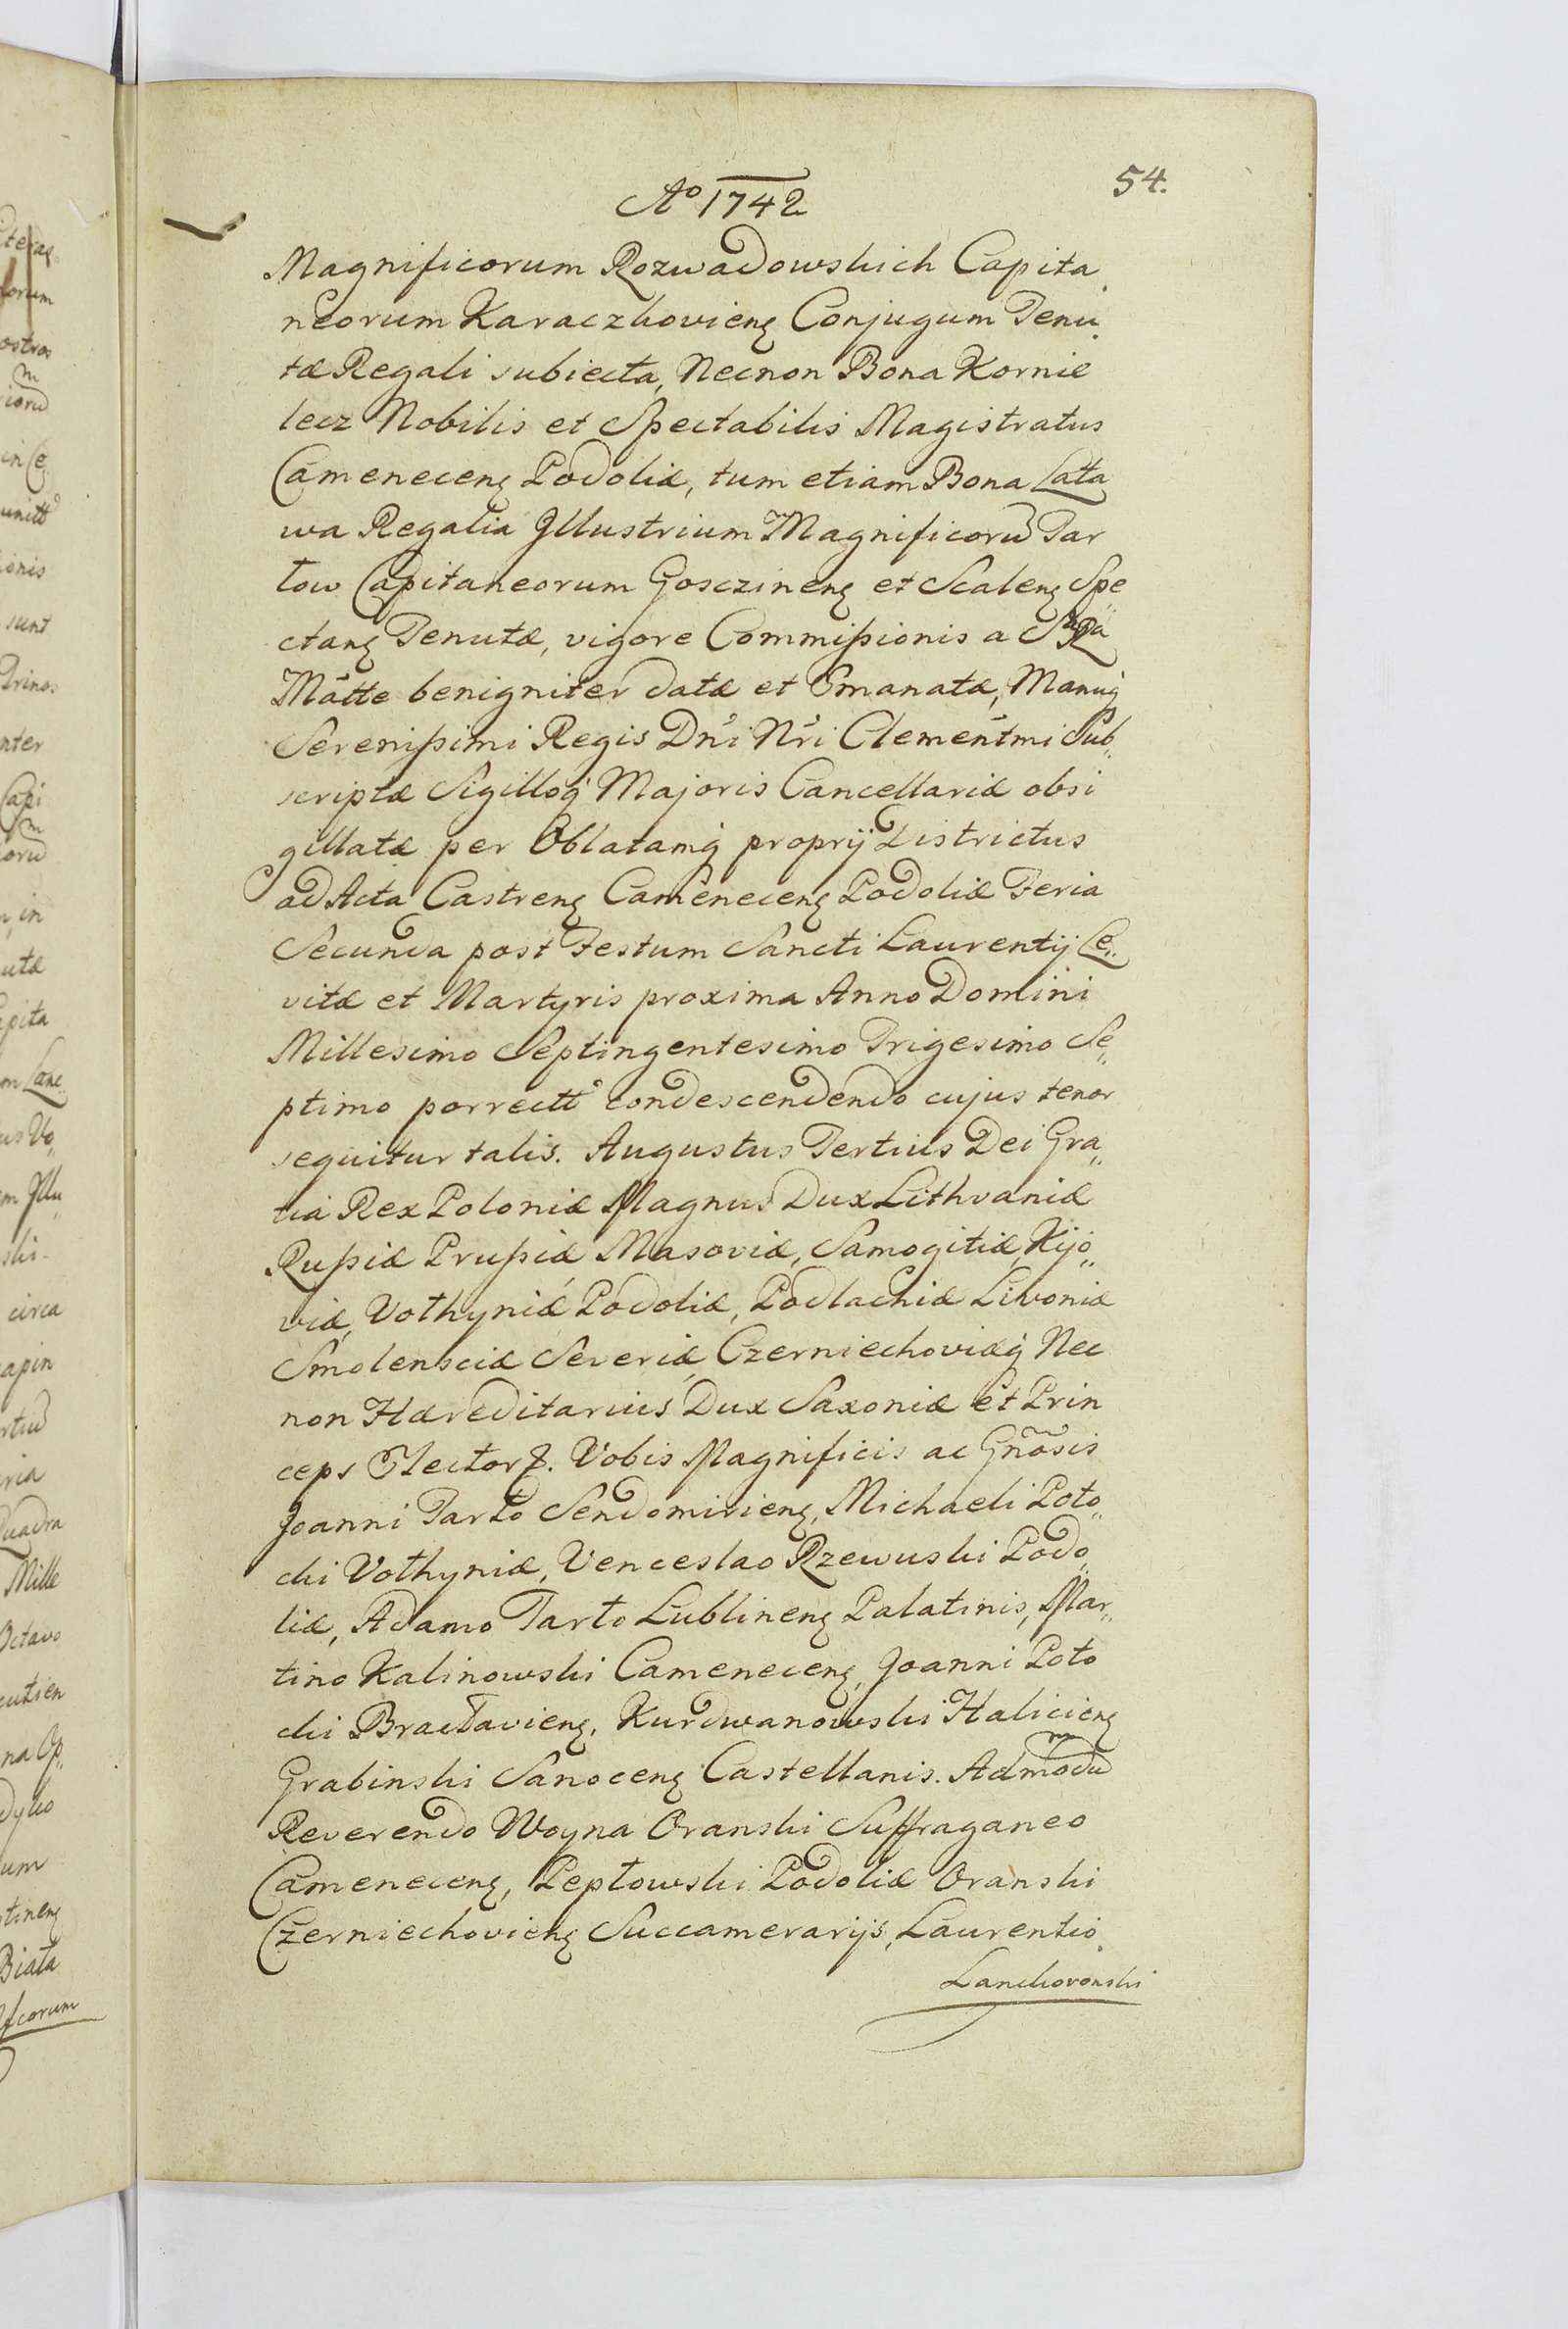 54.
Aº 1742
Magnificorum Rozwadowskich Capita
neorum Karaczkovieng Conjugum Tenu
tæ Regali subiecta, Necnon Bona Kornie
lecz Nobilis et Spectabilis Magistratus
Cameneceng Podoliæ, tum etiam Bona Lata
wa Regalia Jllustrium Magnificorū Tar
łow Capitaneorum Gosczineng et Scaleng Spe„
ctang Tenutæ, vigore Commißionis a S Ra
Mātte benigniter datæ et Emanatæ, Manuq
Serenißimi Regis Dn̄i Nr̄i Clemen̄tmi Sub„
scriptæ Sigilloq Majoris Cancellariæ obsi
gillatæ per Oblatamq proprij Districtus
ad Acta Castreng Cameneceng Podoliæ Feria
Secunda post Festum Sancti Laurentij Le„
vitæ et Martyris proxima Anno Domini
Millesimo Septingentesimo Trigesimo Se„
ptimo porrectt° condescendendo cujus tenor
sequitur talis. Augustus Tertius Dei Gra„
tia Rex Poloniæ Magnus Dux Lithvaniæ
Rußiæ Prußiæ Masoviæ, Samogitiæ, Kijo„
viæ, Vołhyniæ Podoliæ, Podlachiæ Livoniæ
Smolensciæ Severiæ, Czerniechoviæq Nec
non Hæreditarius Dux Saxoniæ et Prin
ceps Elector &. Vobis Magnificis ac Gn̄osis
Joanni Tarło Sendomirieng, Michaeli Poto„
cki Vołhyniæ, Venceslao Rzewuski Podo„
liæ, Adamo Tarło Lublineng Palatinis, Mar„
tino Kalinowski Cameneceng, Joanni Poto
cki Bracłavieng, Kurdwanowski Halicieng
Grabinski Sanoceng Castellanis. Admodū
Reverendo Woyna Oranski Suffraganeo
Cameneceng, Pepłowski Podoliæ Oranski
Czerniechovieng Succamerarijs, Laurentio
Lanckoronski